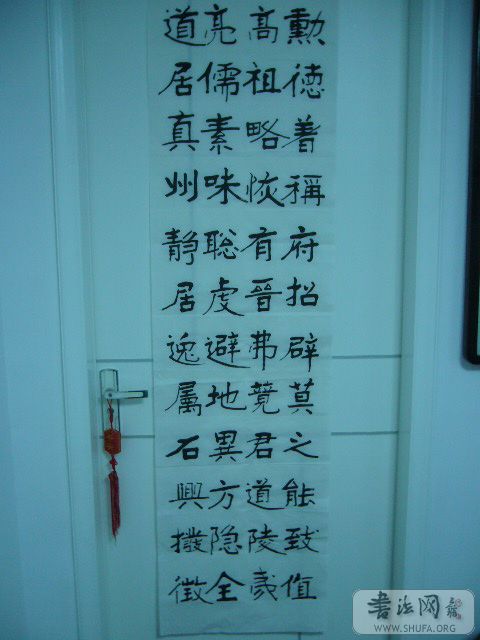 勲德着稱府招辟莫之能致值
高祖略恢有晉弗競君道陵夷
亮儒素味聡虔避地異方隐全
道居真州静居逸属石興撥徵
書法网
WWW.SHUFA.ORG